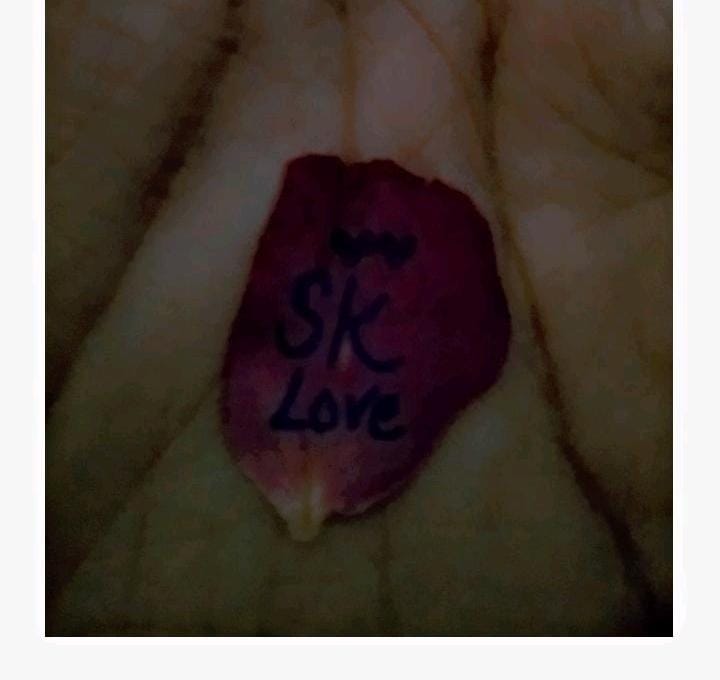 SK
Love